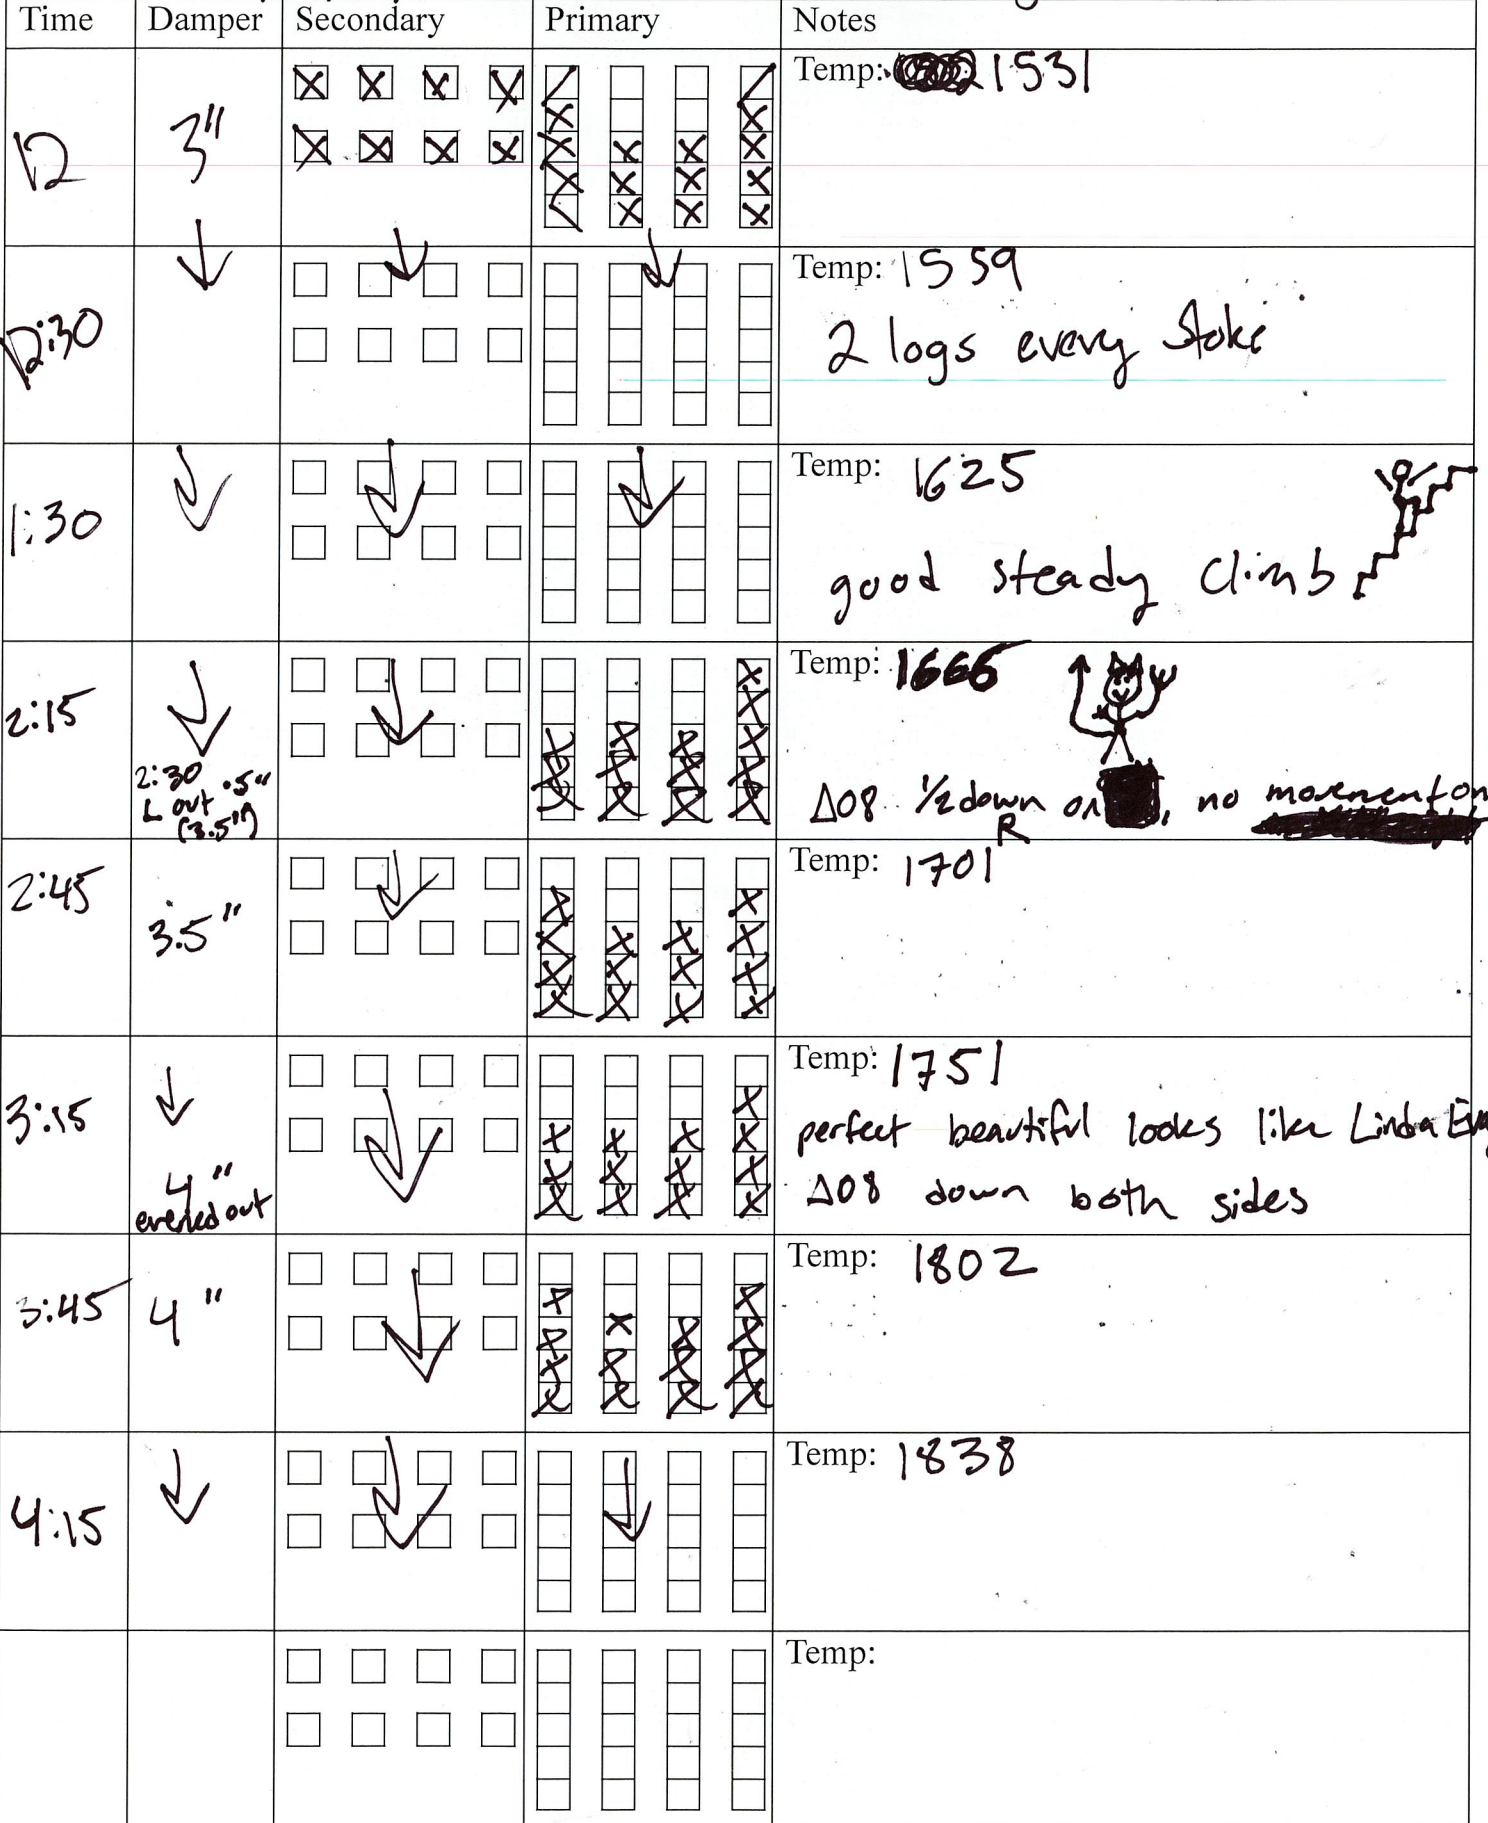 Time Damper Secondary Primary Notes
12 3" Temp: 1531
12:30 Temp: 1559
2 logs every stoke
1:30 Temp: 1625
good steady climb
2:15 Temp: 1666
2:30
L out .5"
(3.5")
Δ08 1/2 down on R, no movement on
2:45 3.5" Temp: 1701
3:15 Temp: 1751
perfect beautiful looks like Linda
4"
evened out
Δ08 down both sides
3:45 4" Temp: 1802
4:15 Temp: 1838
Temp: